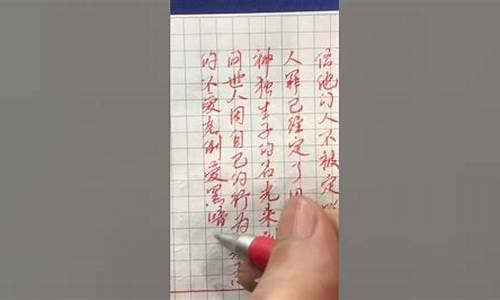 信他的人不被定
人罪已经定了因
神独生子的名光来
间世人因自己的行为
的不爱光倒爱黑暗